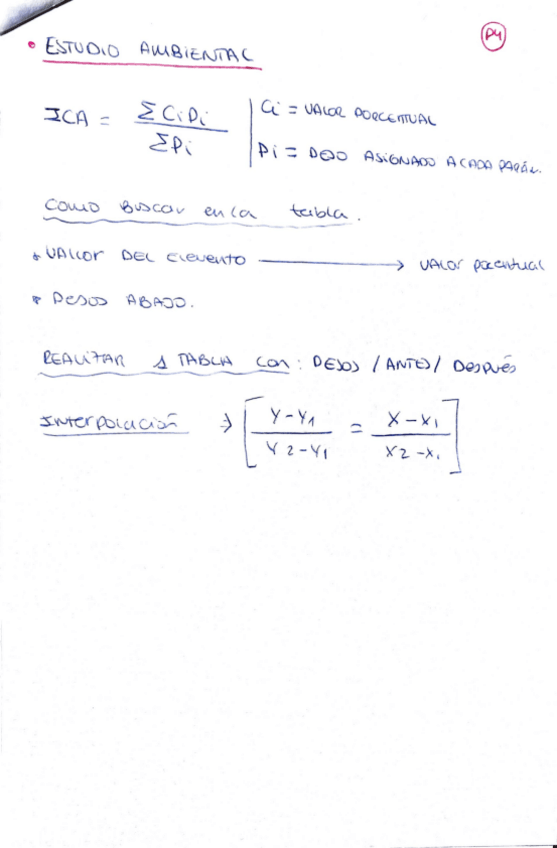 P4
• ESTUDIO AMBIENTAL
ICA = Σ Ci Pi / Σ Pi | Ci = VALOR PORCENTUAL
Pi = PESO ASIGNADO A CADA PARÁM.
COMO BUSCAR en la tabla.
* VALOR DEL elemento → VALOR porcentual
* PESOS ABAJO.
REALIZAR 1 TABLA con: PESOS / ANTES / DESPUÉS
INTERPOLACIÓN → [ Y-Y1 / Y2-Y1 = X-X1 / X2-X1 ]